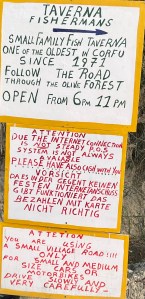 TAVERNA
FISHERMANS
SMALL FAMILY FISH TAVERNA
ONE OF THE OLDEST IN CORFU
SINCE 1971
FOLLOW THE ROAD
THROUGH THE OLIVE FOREST
OPEN FROM 6PM 11PM
ATTENTION
DUE THE INTERNET CONNECTION
IS NOT STEADY P.O.S
SYSTEM IS NOT ALWAYS
AVAIABLE
PLEASE HAVE ALSO CASH WITH YOU
VORSICHT
DA ES IN DER GEGENT KEINEN
FESTEN INTERNETANSCHLUSS
GIBT FUNKTIONIERT DAS
BEZAHLEN MIT KARTE
NICHT RICHTIG
ATTETION
YOU ARE USING
A SMALL VILLAGE ROAD!!!!
ONLY
FOR SMALL AND MEDIUM
SIZE CARS OR
MOTORBIKES
DRIVE SLOWLY AND
VERY CAREFUL